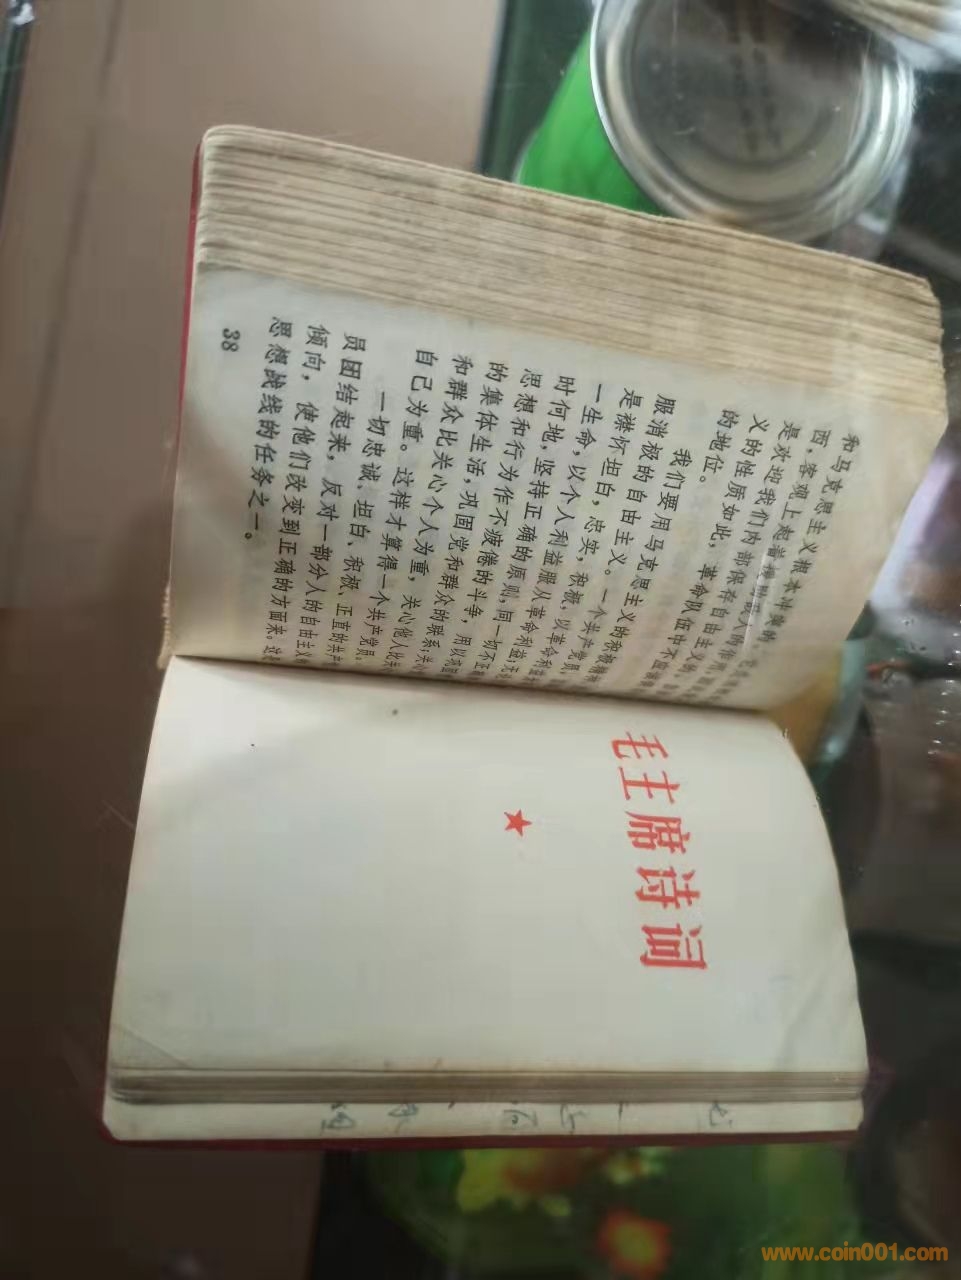 和马克思主义根本冲突的。
西,客观上起着援助敌人的作用
是欢迎我们内部保存自由主义的。
义的性质如此,革命队伍中不应
的地位。
我们要用马克思主义的积极精神
服消极的自由主义。一个共产党员,
是襟怀坦白,忠实,积极,以革命利益
一生命,以个人利益服从革命利益;无论
时何地,坚持正确的原则,同一切不正确
思想和行为作不疲倦的斗争,用以巩固
的集体生活,巩固党和群众的联系;关心
和群众比关心个人为重,关心他人比关
自己为重。这样才算得一个共产党员。
一切忠诚、坦白、积极、正直的共产
员团结起来,反对一部分人的自由主义的
倾向,使他们改变到正确的方面来。这是
思想战线的任务之一。
38
毛主席诗词
www.coin001.com